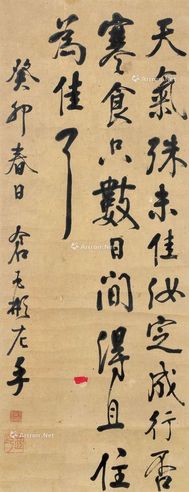 天氣殊未佳汝定成行否
寒食只數日間得且住
為佳了
癸卯春日 左手